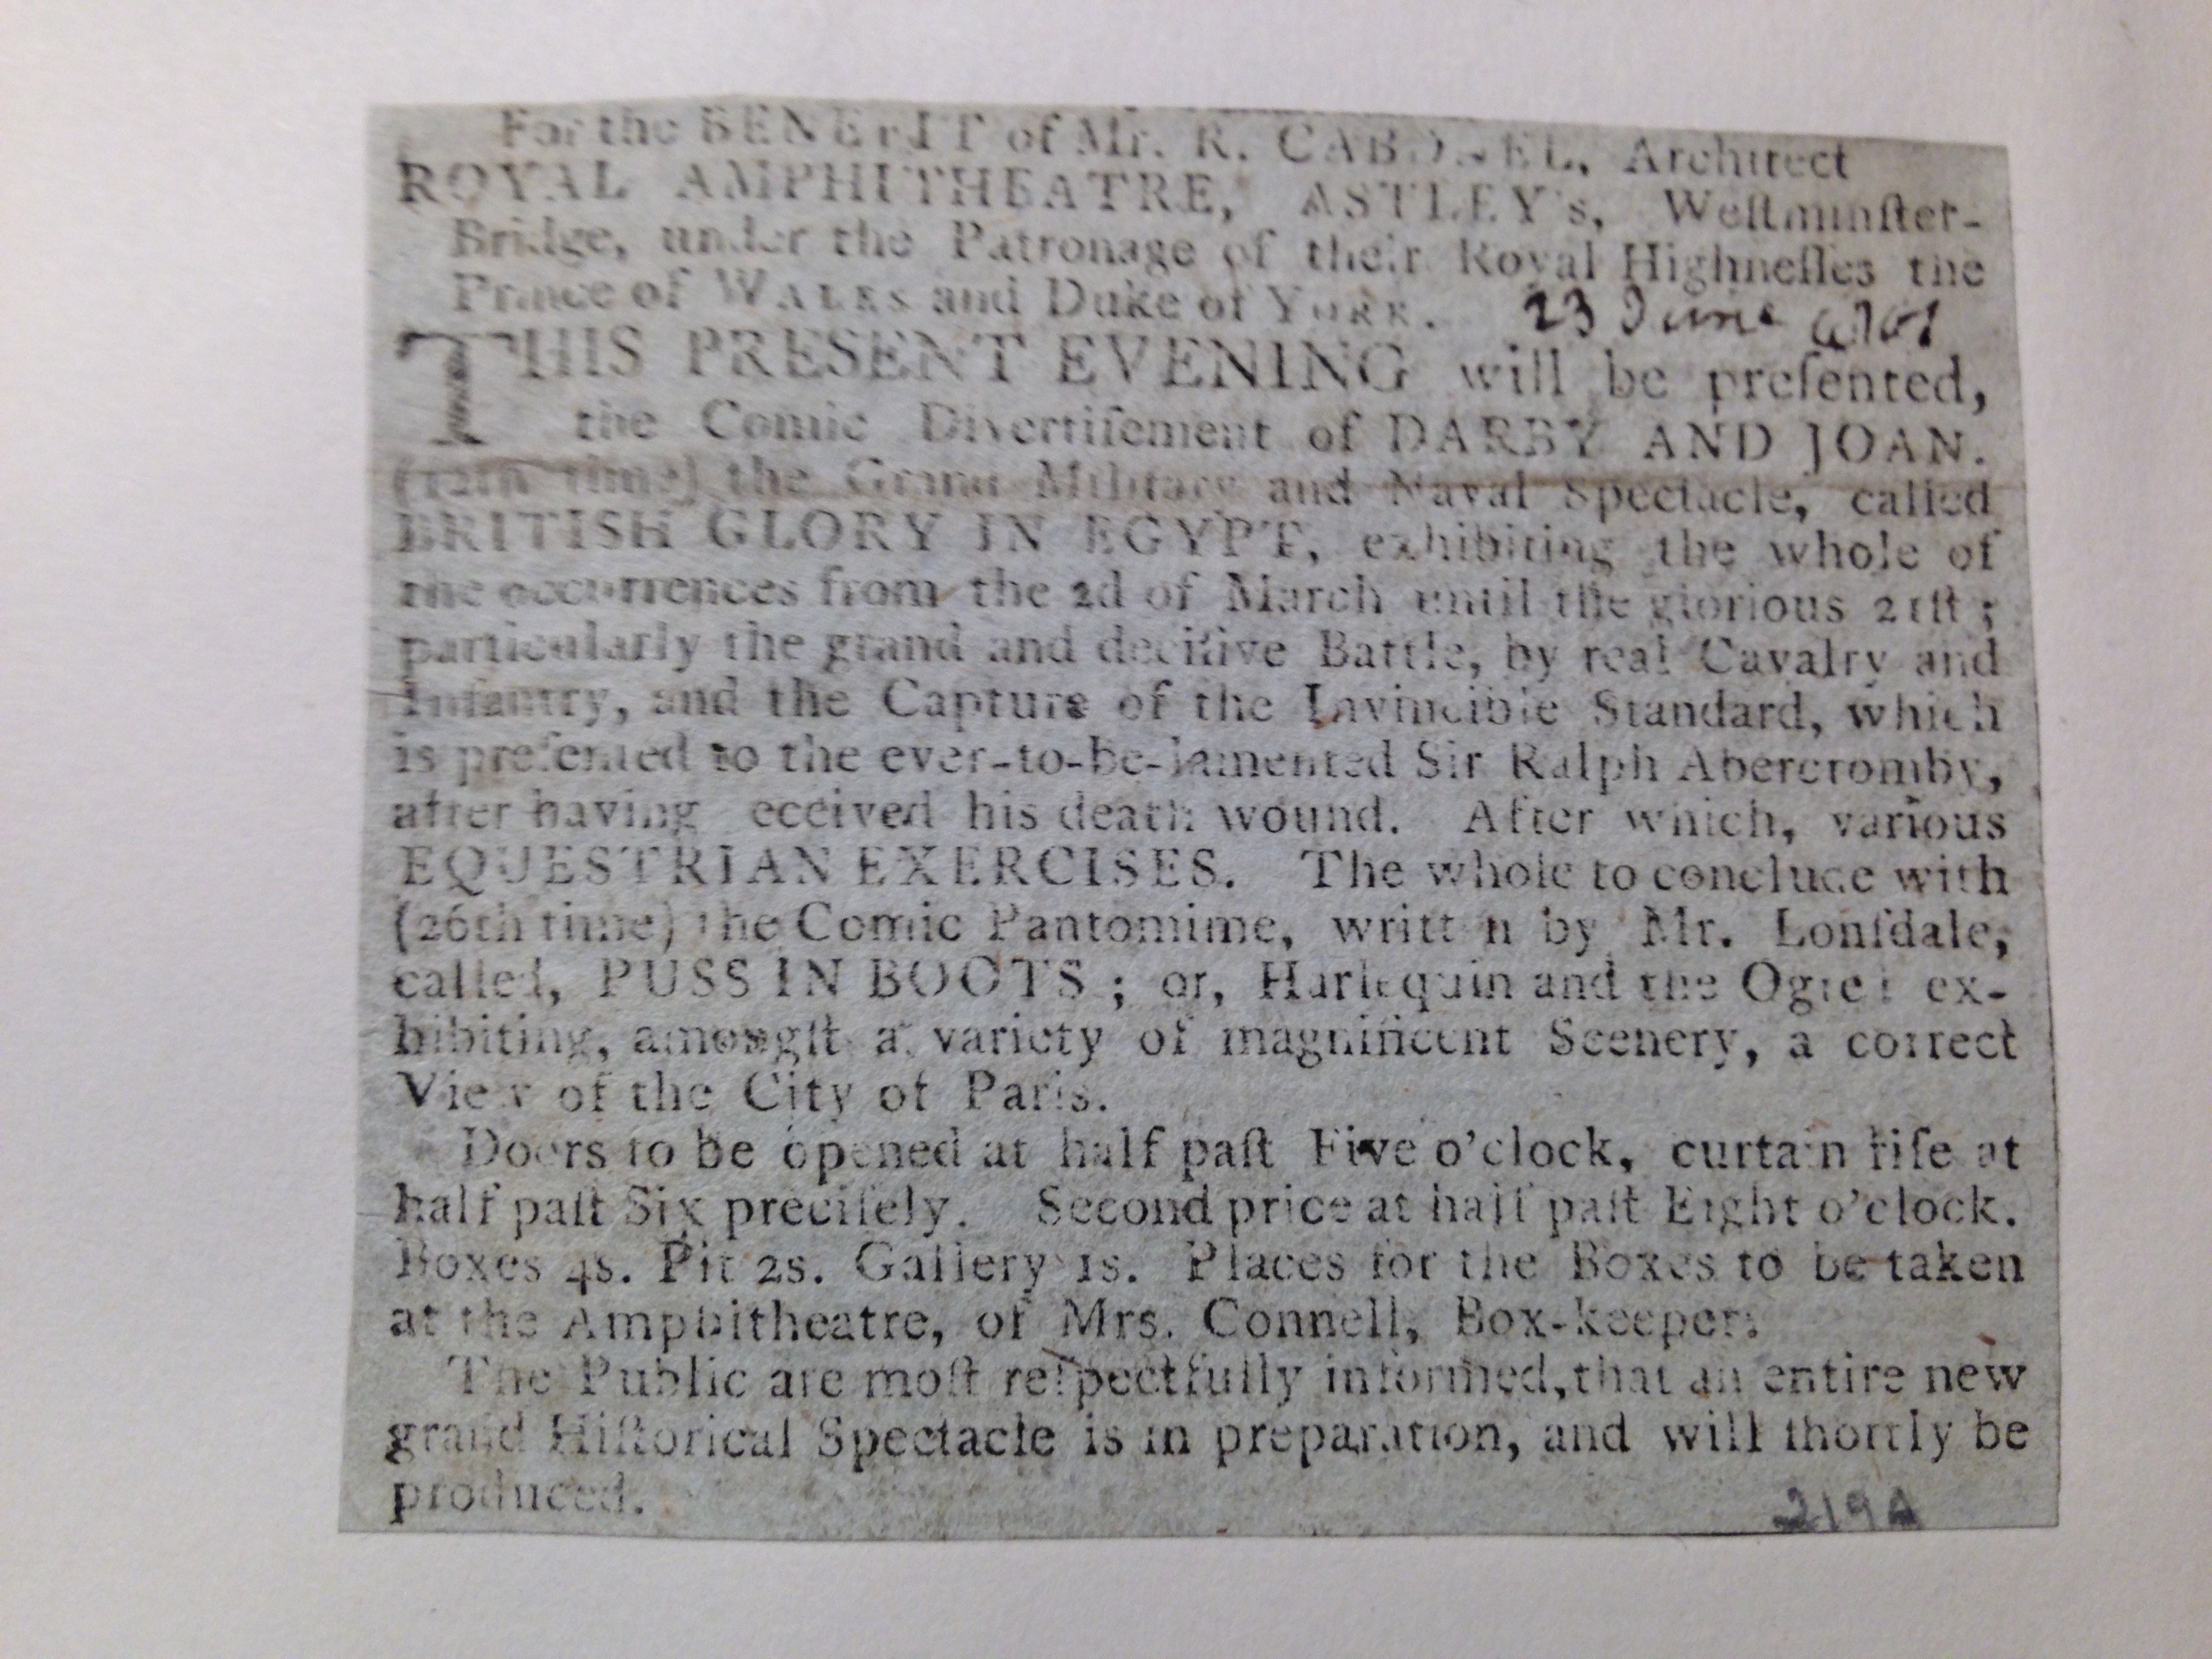 For the BENEFIT of Mr. R. CABANEL, Architect
ROYAL AMPHITHEATRE, ASTLEY's, Weſtminſter-
Bridge, under the Patronage of their Royal Highneſſes the
Prince of WALES and Duke of YORK. 23 June
THIS PRESENT EVENING will be preſented,
the Comic Divertiſement of DARBY AND JOAN.
(12th time) the Grand Military and Naval Spectacle, called
BRITISH GLORY IN EGYPT, exhibiting the whole of
the occurrences from the 2d of March until the glorious 21ſt;
particularly the grand and deciſive Battle, by real Cavalry and
Infantry, and the Capture of the Invincible Standard, which
is preſented to the ever-to-be-lamented Sir Ralph Abercromby,
after having eceived his death wound. After which, various
EQUESTRIAN EXERCISES. The whole to conclude with
(26th time) the Comic Pantomime, writt n by Mr. Lonſdale,
called, PUSS IN BOOTS; or, Harlequin and the Ogre! ex-
hibiting, amongſt a variety of magnificent Scenery, a correct
View of the City of Paris.
Doors to be opened at half paſt Five o'clock, curtain riſe at
half paſt Six preciſely. Second price at half paſt Eight o'clock.
Boxes 4s. Pit 2s. Gallery 1s. Places for the Boxes to be taken
at the Amphitheatre, of Mrs. Connell, Box-keeper.
The Public are moſt reſpectfully informed, that an entire new
grand Hiſtorical Spectacle is in preparation, and will ſhortly be
produced.
219A